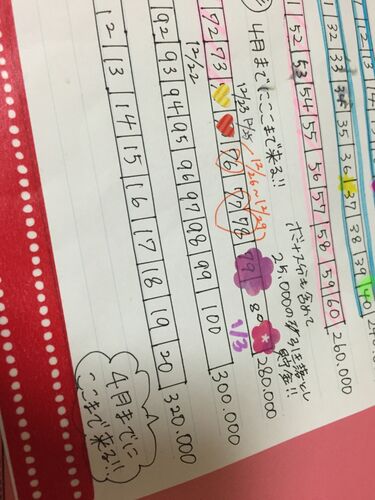 32 33 34 35 36 37 38 39 40
52 53 54 55 56 57 58 59 60 260.000
ボーナス分も含めて
25,000の引き落とし
貯金!!
4月までにここまで来る!!
12/23
12/26~12/29
72 73 76 77 78 79 80 280.000
12/22
1/3
92 93 94 95 96 97 98 99 100 300.000
12 13 14 15 16 17 18 19 20 320.000
4月までに
ここまで来る!!